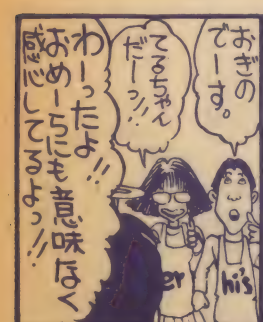 おぎの
でーす。
てるちゃん
だーっ!!
わーったよ!!
おめーらにも意味なく
感心してるよっ!!
er
his